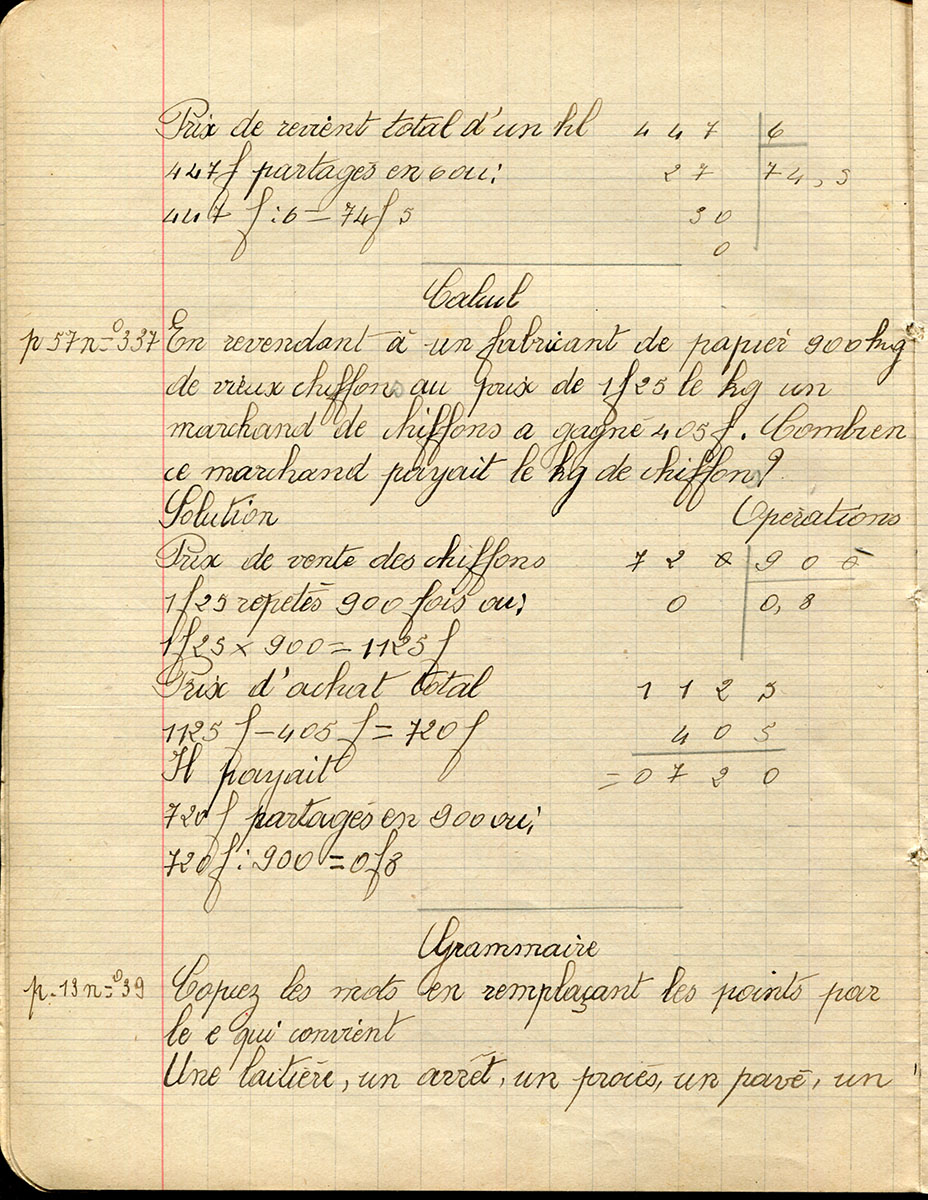 Prix de revient total d'un hl 4 4 7 6
447f partagés en 6 ou: 2 7 7 4, 5
447 f : 6 = 74f 5 3 0
0
Calcul
p 57 nº 337 En revendant à un fabricant de papier 900 kg
de vieux chiffons au prix de 1f25 le kg un
marchand de chiffons a gagné 405f. Combien
ce marchand payait le kg de chiffon?
Solution Opérations
Prix de vente des chiffons 7 2 0 9 0 0
1f25 repetés 900 fois ou: 0 0, 8
1f25 × 900 = 1125 f
Prix d'achat total 1 1 2 5
1125 f - 405 f = 720f 4 0 5
Il payait = 0 7 2 0
720 f partagés en 900 ou:
720f : 900 = 0f8
Grammaire
p. 13 nº 39 Copiez les mots en remplaçant les points par
le e qui convient
Une laitière, un arrêt, un procés, un pavé, un